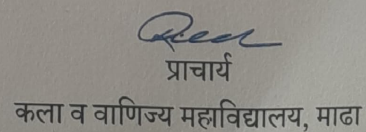 प्राचार्य
कला व वाणिज्य महाविद्यालय, माढा